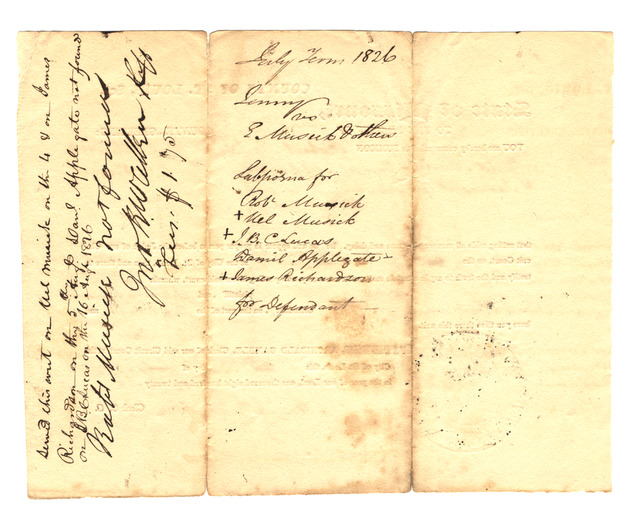 Served this writ on Uel Musick on the 4 & on James
Richardson on the 5 Augt & Danl Applegate not found
on J.B.C Lucas on the 16 Augt 1826
Robt Musick not found
Jno K Walker Shff
Fees. $1.75
July Term 1826
Jenny
vs
E Musick & others
Subpoena for
Robt Musick
+ Uel Musick
+ J. B. C Lucas
Daniel Applegate
+ James Richardson
for Defendant